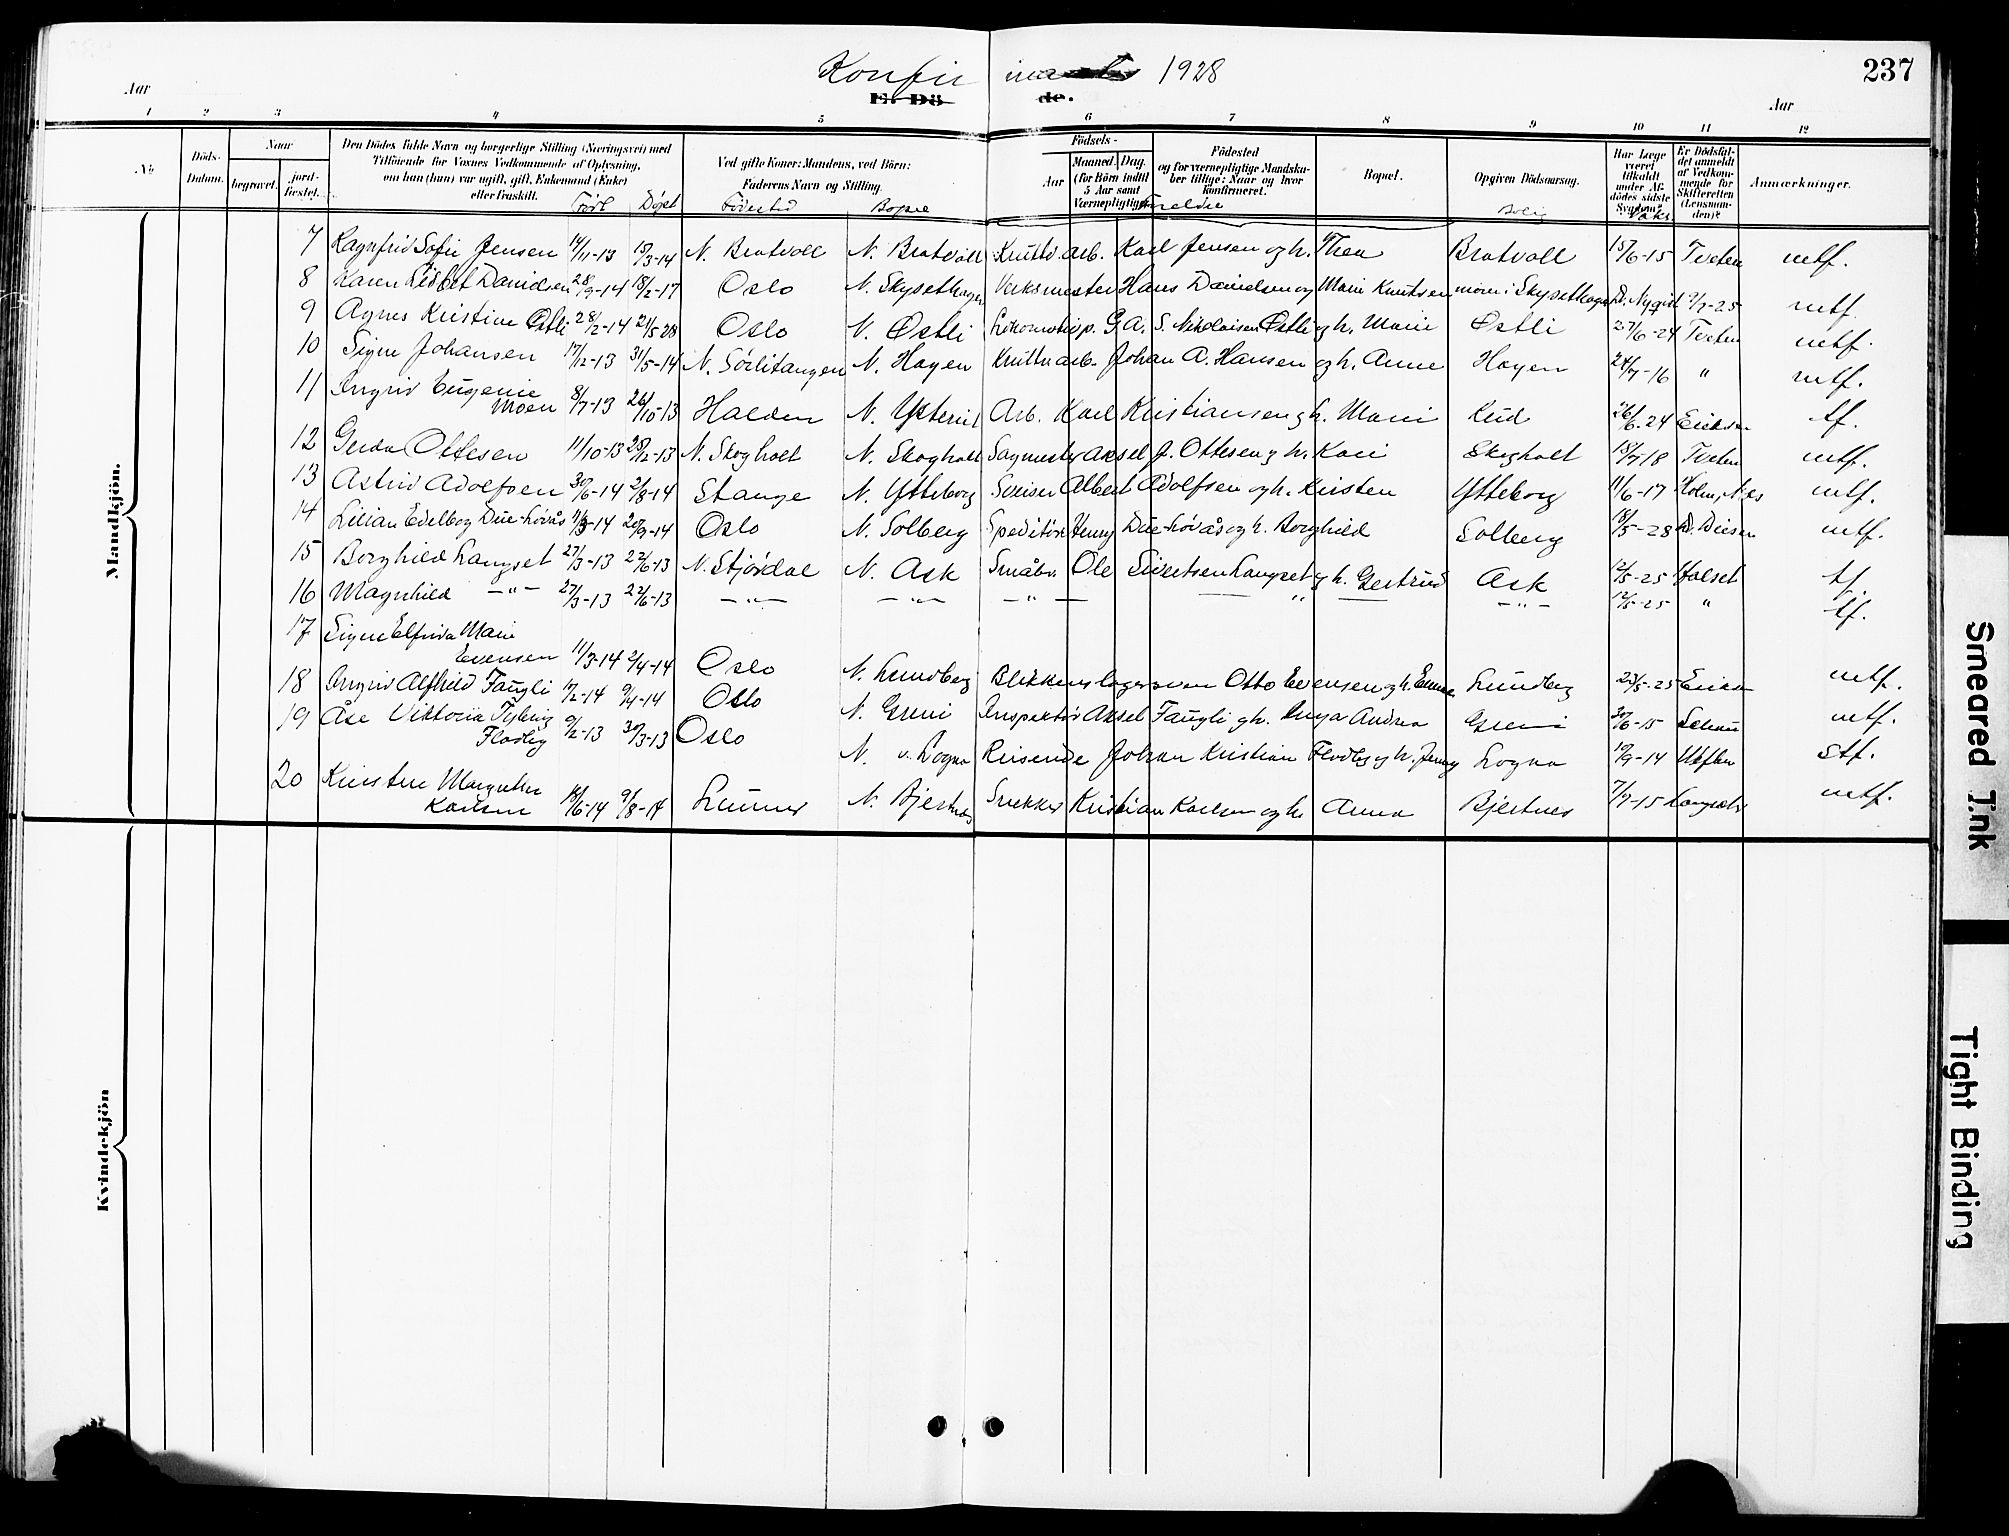 Konfirmerte 1928
237
Aar
Er Döde.
Aar
1 2 3 4 5 6 7 8 9 10 11 12
No
Döds-Datum.
Naar
begravet.
jord-fæstet.
Den Dödes fulde Navn og borgerlige Stilling (Næringsvei) med
Tilföiende for Voxnes Vedkommende af Oplysning,
om han (hun) var ugift, gift, Enkemand (Enke)
eller fraskilt.
Født Døpt
Ved gifte Koner: Mandens, ved Börn:
Faderens Navn og Stilling.
Fødested Bopæl
Födsels-
Aar
Maaned. Dag.
(for Börn indtil
5 Aar samt
Værnepligtige)
Födested
og for værnepligtige Mandska-
ber tillige: Naar og hvor
konfirmeret.
Foreldre
Bopæl.
Opgiven Dödsaarsag.
Bolig
Har Læge
været
tilkaldt
under Af-
dödes sidste
Sygdom?
Vaks.
Er Dödsfal-
det anmeldt
af Vedkom-
mende for
Skifteretten
(Lensman-
den)?
Anmærkninger.
Mandkjön.
7 Ragnfrid Sofie Jensen 14/11-13 15/3-14 N. Bratvoll N. Bratvoll Kruttv. arb. Karl Jensen og h. Thea Bratvoll 15/6-15 Tveten mtf.
8 Karen Lisbet Davidsen 28/9-14 18/2-17 Oslo N. Skysethagen Verksmester Hans Davidsen og Marie Knutsen moren i Skysethagen D. Nyqist 2/7-25 mtf.
9 Agnes Kristine Østli 28/2-14 21/5 28 Oslo N. Østli Lokomotivp. G. A. S. Nikolaisen Østli og h. Marie Østli 27/6-24 Tveten mtf.
10 Signe Johansen 17/12-13 31/5-14 N. Sørlitangen N. Hagen Kruttv arb. Johan A. Hansen og h. Anne Hagen 24/7-16 " mtf.
11 Ingrid Eugenie
Moen 8/7-13 26/10-13 Halden N. Arb. Karl Kristiansen og h. Marie Rud 26/6-24 Eriksen tf.
12 Gerda Ottesen 11/10-13 28/12-13 N. Skogholt N. Skogholt Sagmester Aksel J. Ottesen og h. Kari Skogholt 15/7-18 Tveten mtf.
13 Astrid Adolfsen 30/6-14 2/8-14 Stange N. Ytteborg Sveiser Albert Adolfsen og h. Kirsten Ytteborg 11/6-17 Holm, Nes mtf.
14 Lilian Edelborg Due-Løvås 1/3-14 20/9-14 Oslo N. Solberg Speditør Henry Due-Løvås og h. Borghild Solberg 18/5-28 D. Diesen mtf.
15 Borghild Langset 27/3-13 22/6-13 N. Stjørdal N. Ask Småbr. Ole Sivertsen Langset og h. Gertrud Ask 12/5-25 Holset tf.
16 Magnhild —"— 27/3-13 22/6-13 —"— —"— —"— " —"— 12/5-25 " tf.
17 Signe Elfrida Marie
Evensen 11/3-14 2/4-14 Oslo N. Lundberg Blikkenslagersven Otto Evensen og h. Emma Lundberg 23/5-25 Eriksen mtf.
18 Ingrid Alfhild Faugli 17/2-14 9/4-14 Oslo N. Greni Inspektør Aksel Faugli og h. Inga Andrea Greni 30/6-15 Schau mtf.
19 Åse Viktoria
Flodby 9/2-13 30/3-13 Oslo N. v. Logna Reisende Johan Kristian Flodby og h. Jenny Logna 17/9-14 stf.
20 Kirsten Margrethe
Karlsen 18/6-14 9/8-14 Lunner N. Bjertnes Snekker Kristian Karlsen og h. Anna Bjertnes 7/7-15 mtf.
Kvindekjön
Smeared Ink
Tight Binding